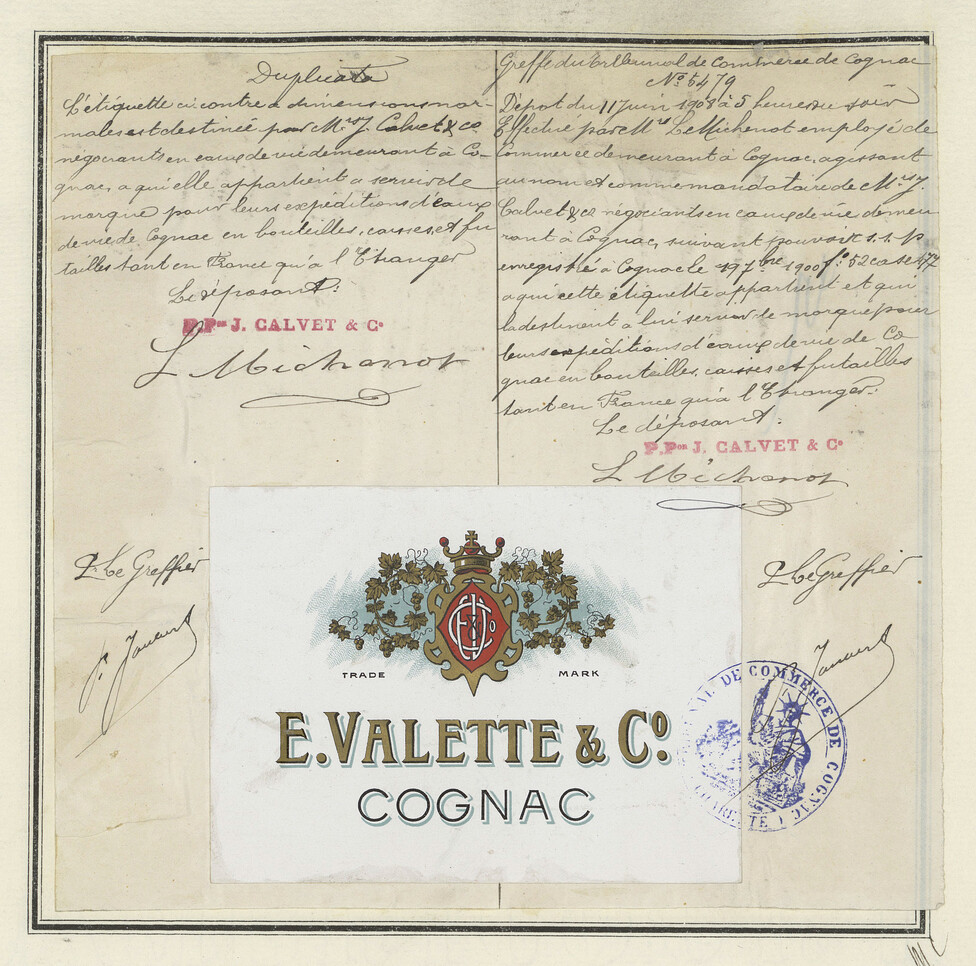 Duplicata
L'étiquette ci contre a dimensions nor-
males est destinée par Mrs J. Calvet & co
négociants en eaux de vie demeurant à Co-
gnac, a qui elle appartient a servir de
marque pour leurs expéditions d'eaux
de vie de Cognac en bouteilles, caisses, et fu
tailles tant en France qu'à l'Etranger
Le déposant:
P.Pon J. CALVET & Co
L Michenot
P. Le Greffier
Greffe du Tribunal de Commerce de Cognac
No 5479
Dépot du 11 Juin 1908 à 5 heures du soir
Effectué par Mr L. Michenot employé de
Commerce demeurant à Cognac, agissant
au nom et comme mandataire de Mrs J.
Calvet & co négociants en eaux de vie demeu
rant à Cognac, suivant pouvoir s.s.p
enregistré à Cognac le 19 7bre 1900 fo 52 case 477
a qui cette étiquette appartient et qui
la destinent a lui servir de marque pour
leurs expéditions d'eaux de vie de Co
gnac en bouteilles, caisses et futailles
tant en France qu'à l'Etranger.
Le déposant:
P.Pon J. CALVET & Co
L Michenot
P. Le Greffier
TRADE MARK
E. VALETTE & Co.
COGNAC
DE COMMERCE DE COGNAC